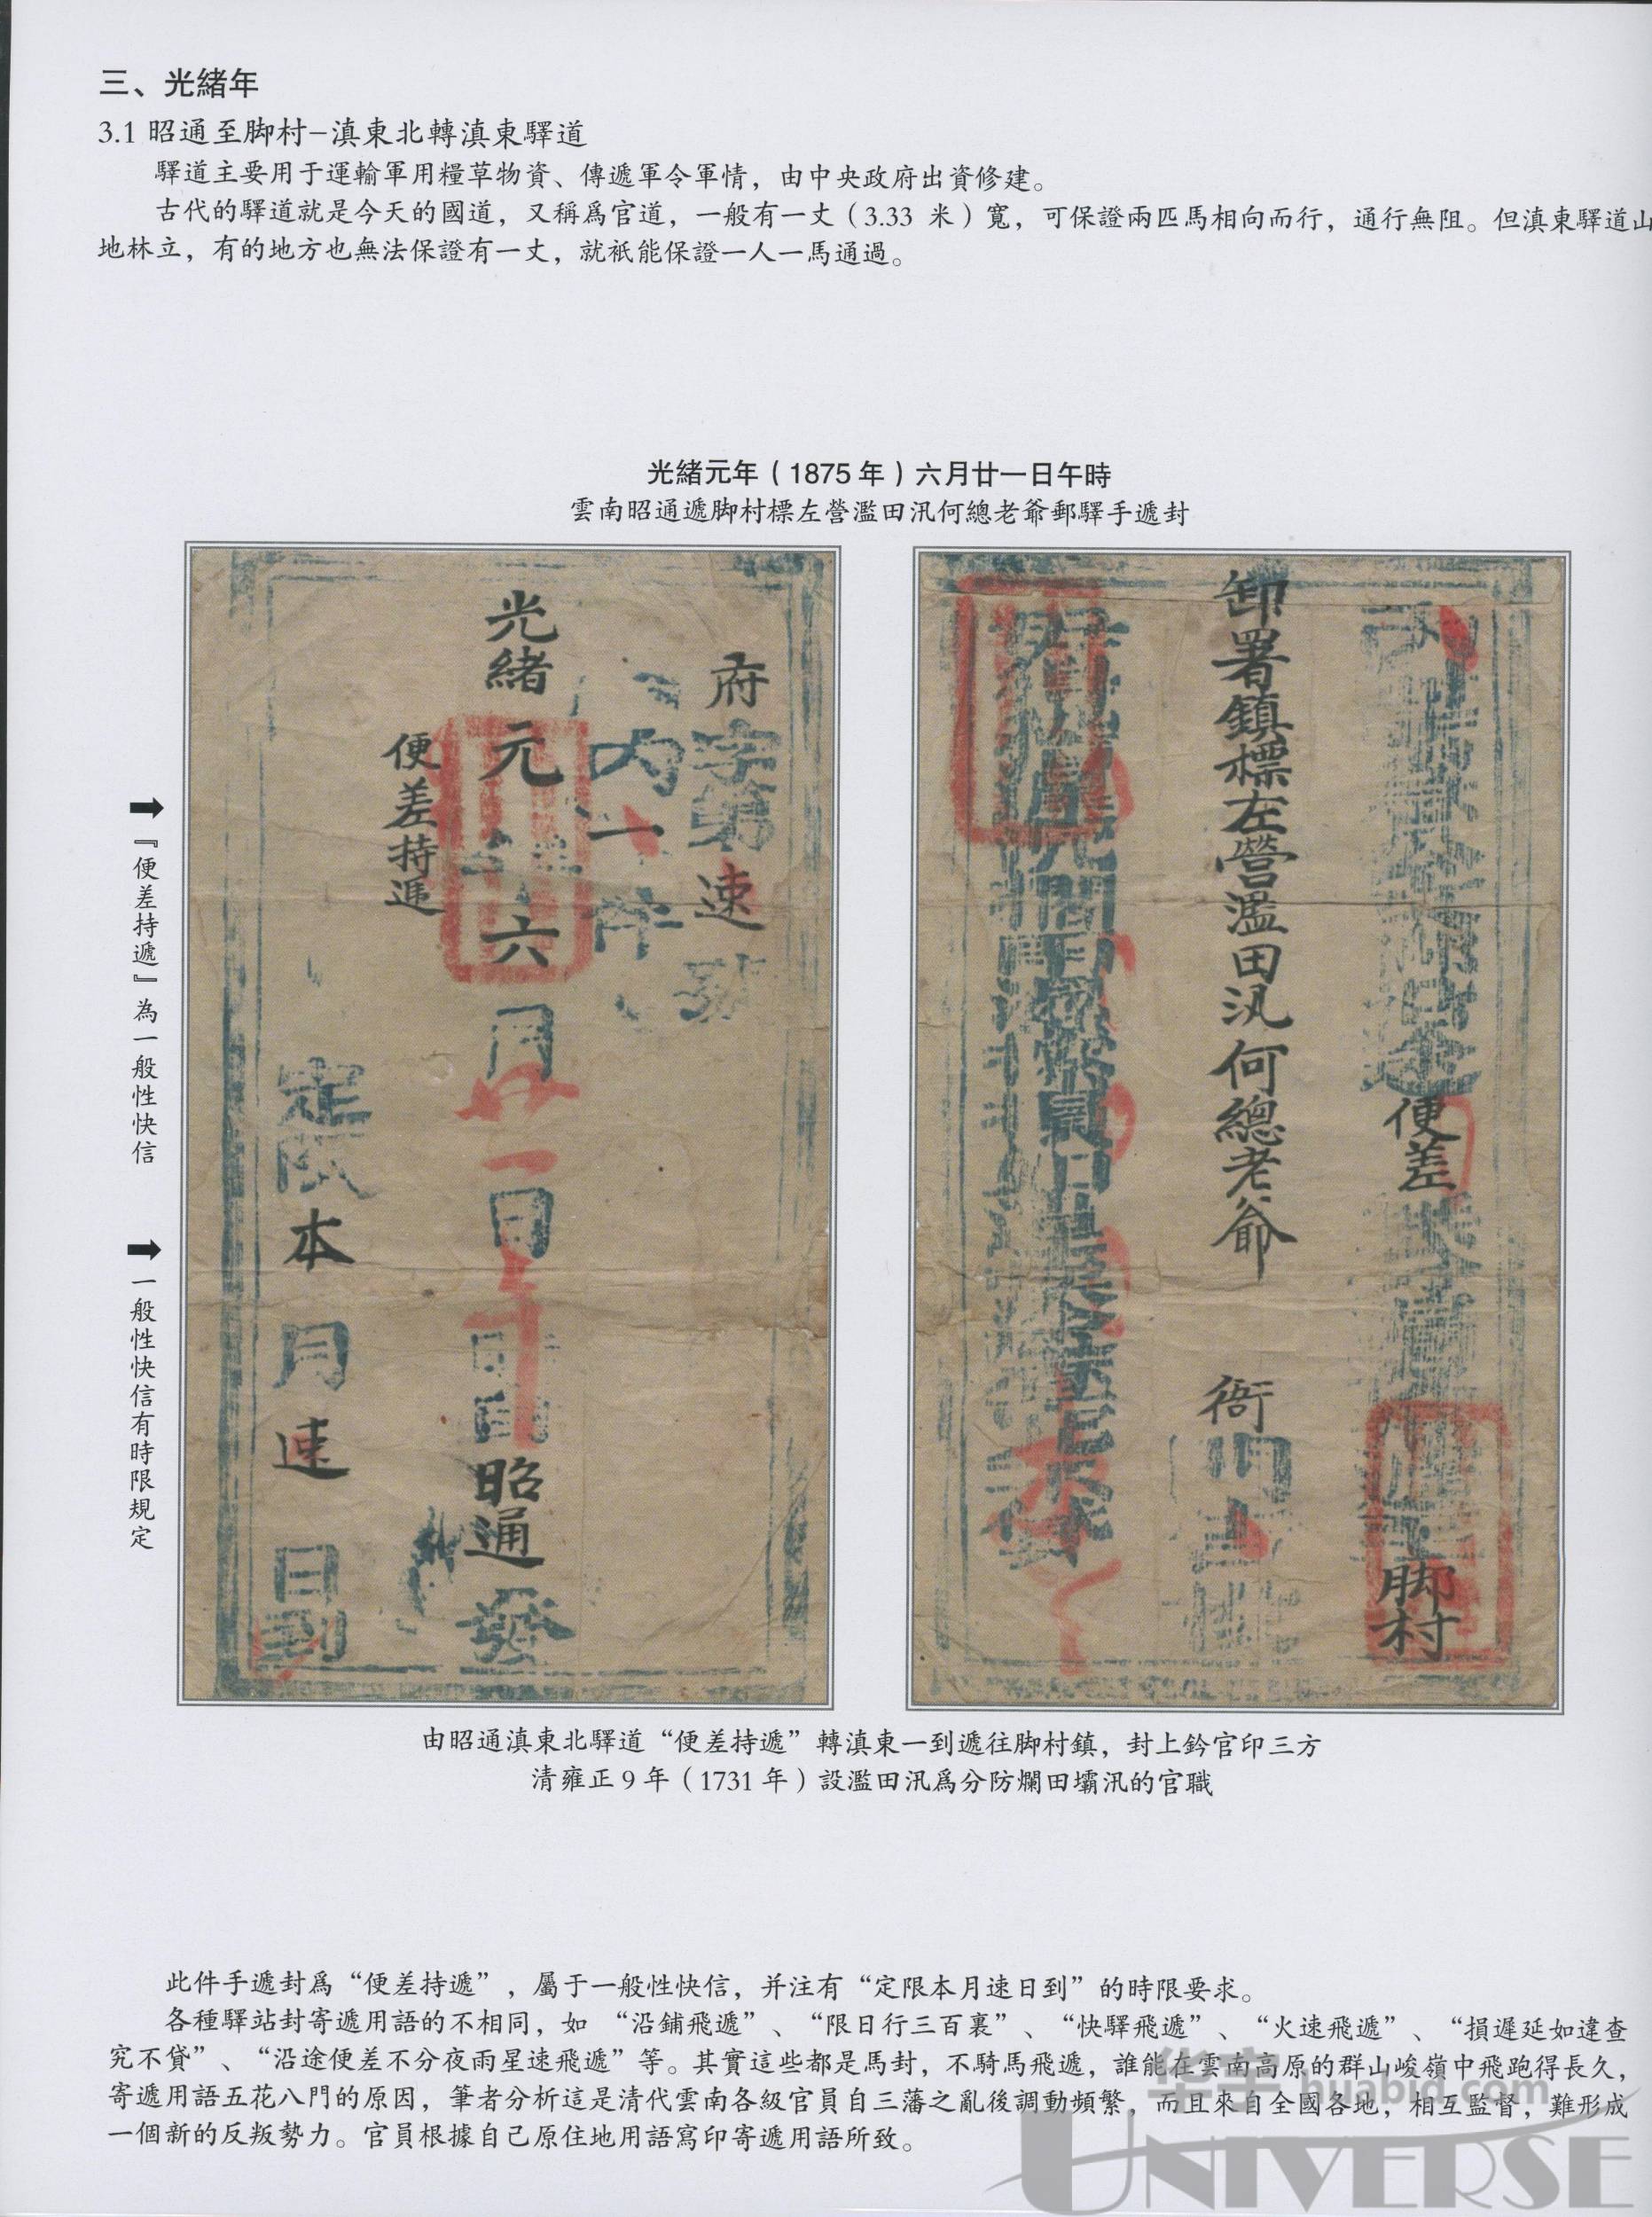 三、光緒年
3.1 昭通至脚村–滇東北轉滇東驛道
驛道主要用于運輸軍用糧草物資、傳遞軍令軍情，由中央政府出資修建。
古代的驛道就是今天的國道，又稱爲官道，一般有一丈（3.33 米）寬，可保證兩匹馬相向而行，通行無阻。但滇東驛道山
地林立，有的地方也無法保證有一丈，就衹能保證一人一馬通過。
光緒元年（1875年）六月廿一日午時
雲南昭通遞脚村標左營濫田汛何總老爺郵驛手遞封
府字第速
內一件
光緒元年六月廿一日午時昭通發
便差持遞
定限本月速日到
便差
脚村
卸署鎮標左營濫田汛何總老爺 衙門
➡『便差持遞』為一般性快信
➡一般性快信有時限規定
由昭通滇東北驛道“便差持遞”轉滇東一到遞往脚村鎮，封上鈐官印三方
清雍正9年（1731年）設濫田汛爲分防爛田壩汛的官職
此件手遞封爲“便差持遞”，屬于一般性快信，并注有“定限本月速日到”的時限要求。
各種驛站封寄遞用語的不相同，如 “沿鋪飛遞”、“限日行三百裏”、“快驛飛遞”、“火速飛遞”、“損遲延如違查
究不貸”、“沿途便差不分夜雨星速飛遞”等。其實這些都是馬封，不騎馬飛遞，誰能在雲南高原的群山峻嶺中飛跑得長久，
寄遞用語五花八門的原因，筆者分析這是清代雲南各級官員自三藩之亂後調動頻繁，而且來自全國各地，相互監督，難形成
一個新的反叛勢力。官員根據自己原住地用語寫印寄遞用語所致。
华宇 huabid.com
UNIVERSE